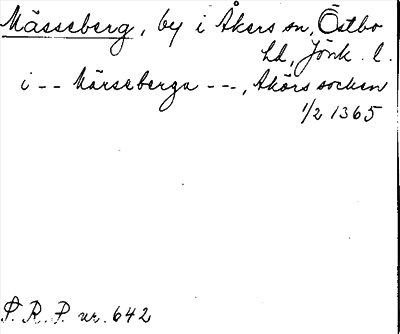 Mässeberg, by i Åkers sn, Östbo
hd, Jönk. l.
i -- Märseberga ---, Akörs socken
1/2 1365
P. R. P. nr. 642